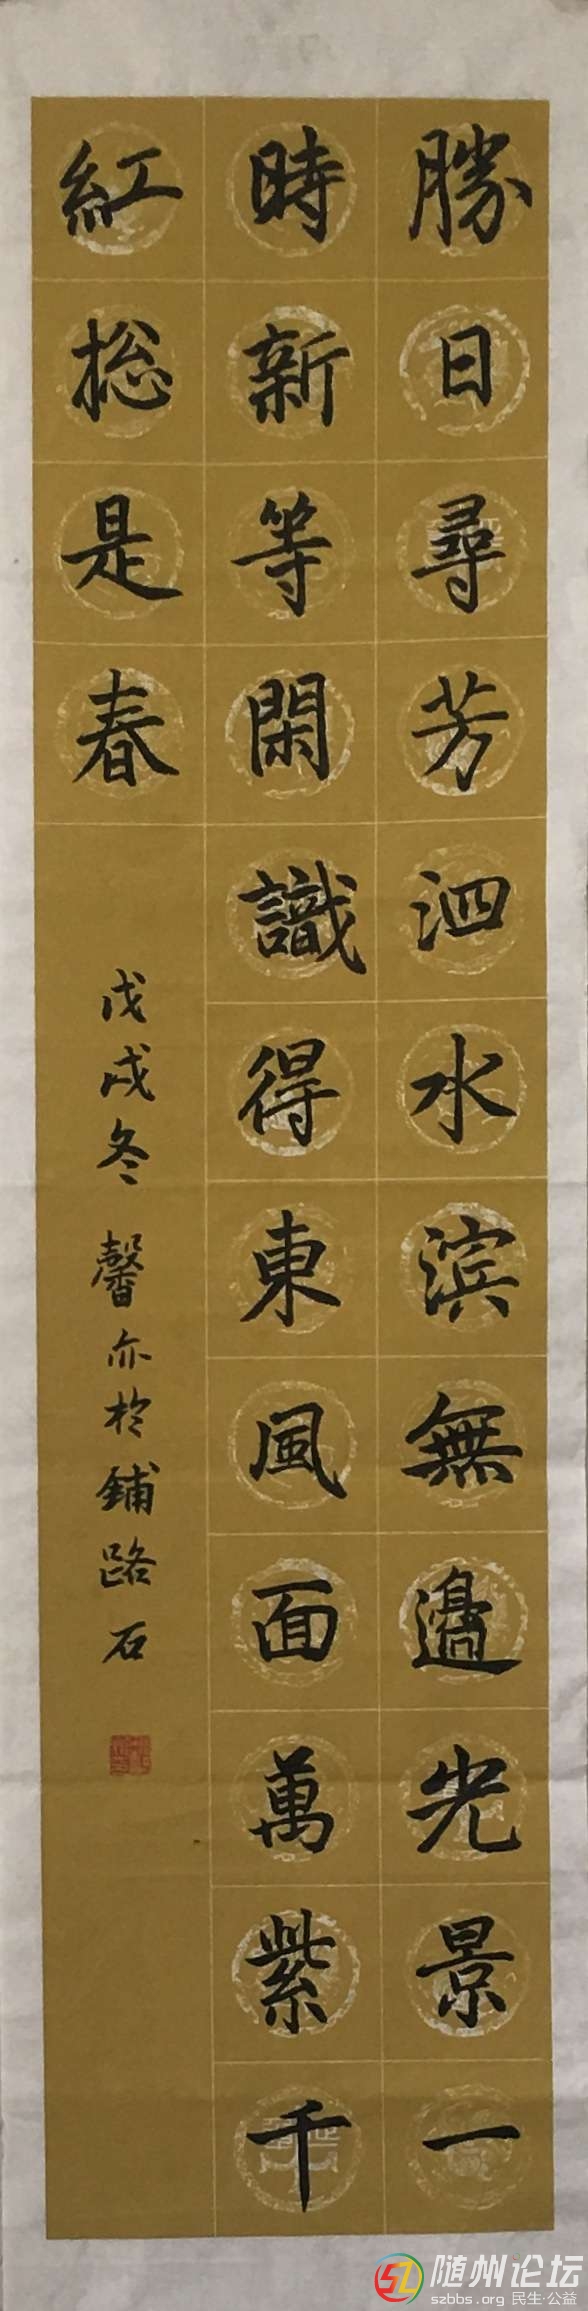 勝日尋芳泗水滨無邊光景一
時新等閑識得東風面萬紫千
紅総是春
戊戌冬 馨亦於鋪路石
随州论坛
szbbs.org 民生·公益